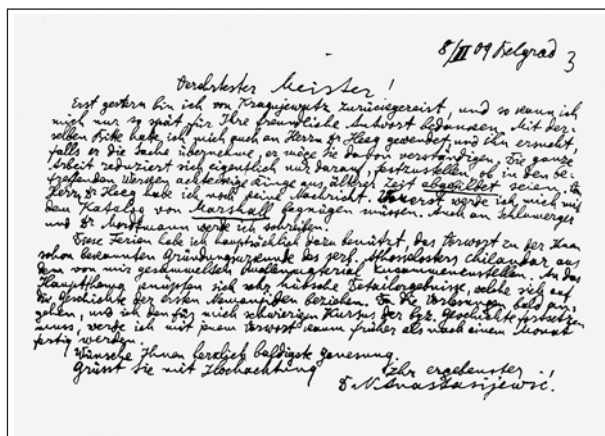 8/II 09 Belgrad 3
Verehrtester Meister!
Erst gestern bin ich von Kragujewatz zurückgereist, und so kann ich
mich nur so spät für Ihre freundliche Antwort bedanken. Mit der-
selben Bitte hatte ich mich auch an Herrn Dr Heeg gewendet und ihn ersucht,
falls er die Sache übernehme, er möge Sie davon verständigen. Die ganze
Arbeit reduziert sich eigentlich nur darauf, festzustellen, ob in den be-
treffenden Werken achteckige Ringe aus älterer Zeit abgebildet seien. Von
Herrn Dr Heeg habe ich noch keine Nachricht. Vorerst werde ich mich mit
dem Katalog von Marshall begnügen müssen. Auch an Schlumberger
und Dr Mordtmann werde ich schreiben.
Diese Ferien habe ich hauptsächlich dazu benützt, das Vorwort zu der
schon bekannten Gründungsurkunde des serb. Athosklosters Chilandar aus
dem von mir gesammelten Quellenmaterial zusammenzustellen. An das
Hauptthema knüpfen sich sehr hübsche Detailergebnisse, welche sich auf
die Geschichte der ersten Nemanjiden beziehen. Da die Vorlesungen bald an-
gehen, und ich den für mich schwierigen Kursus der byz. Geschichte fortsetzen
muss, werde ich mit jenem Vorwort kaum früher als nach einem Monat
fertig werden.
Wünsche Ihnen herzlich baldigste Genesung.
Grüsst Sie mit Hochachtung Ihr ergebenster
D. N. Anastasijewić.